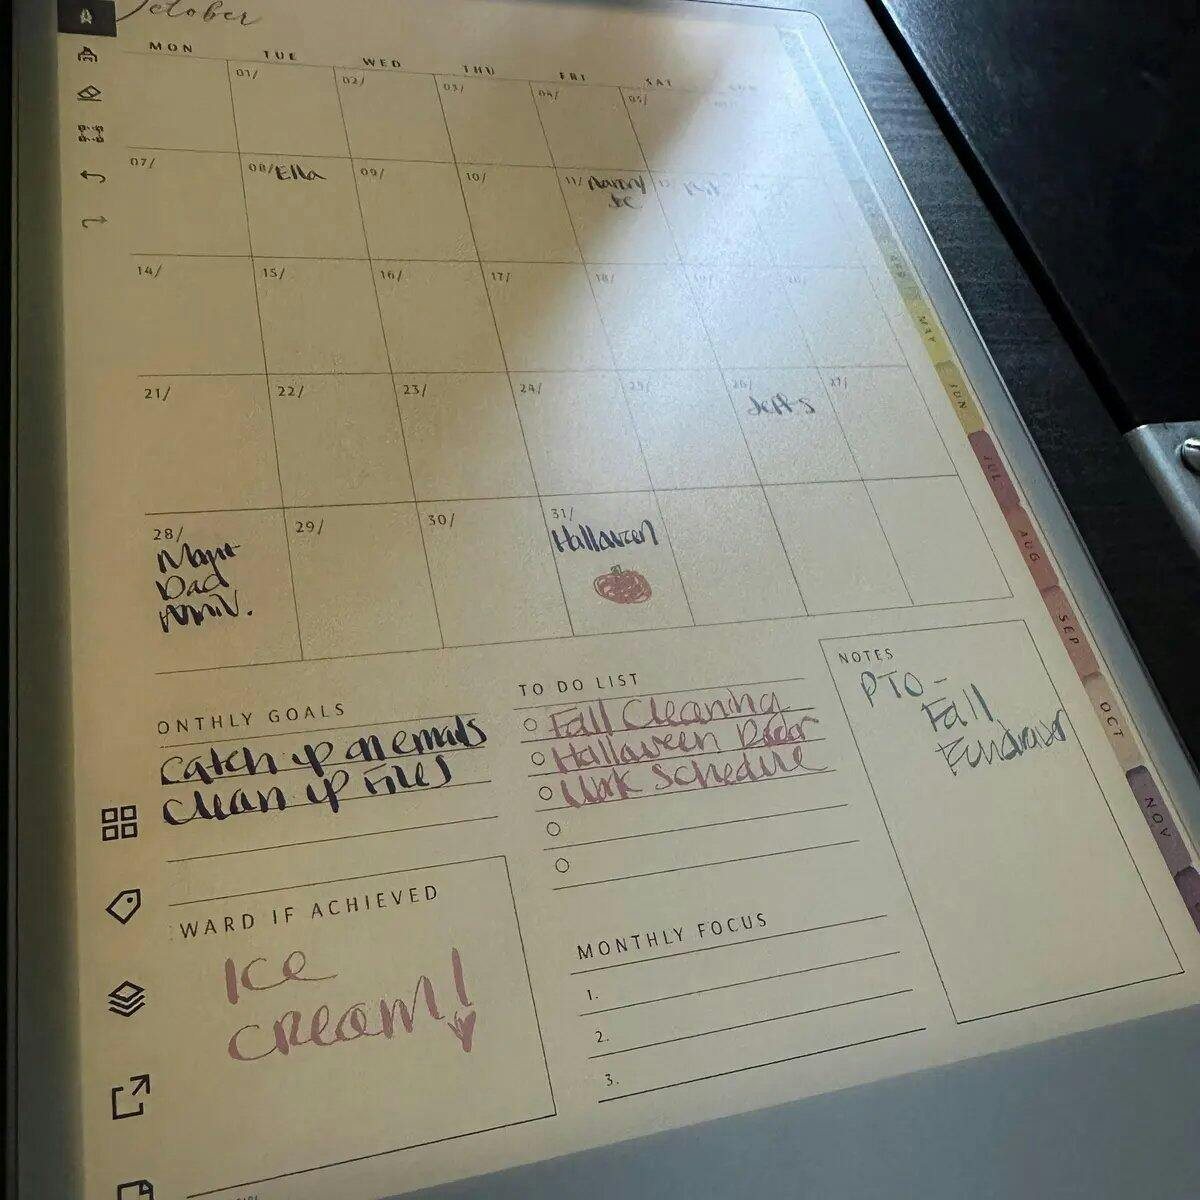 October
MON TUE WED THU FRI SAT SUN
01/ 02/ 03/ 04/ 05/
07/ 08/ Ella 09/ 10/ 11/
14/ 15/ 16/ 17/ 18/ 19/ 20/
21/ 22/ 23/ 24/ 25/ 26/ 27/
Jeff's
28/ 29/ 30/ 31/
Dad
Anniv.
Halloween
ONTHLY GOALS
catch up on emails
clean up files
TO DO LIST
Fall Cleaning
Halloween Decor
Work Schedule
NOTES
PTO -
Fall
WARD IF ACHIEVED
Ice
cream!
MONTHLY FOCUS
1.
2.
3.
APR
MAY
JUN
JUL
AUG
SEP
OCT
NOV